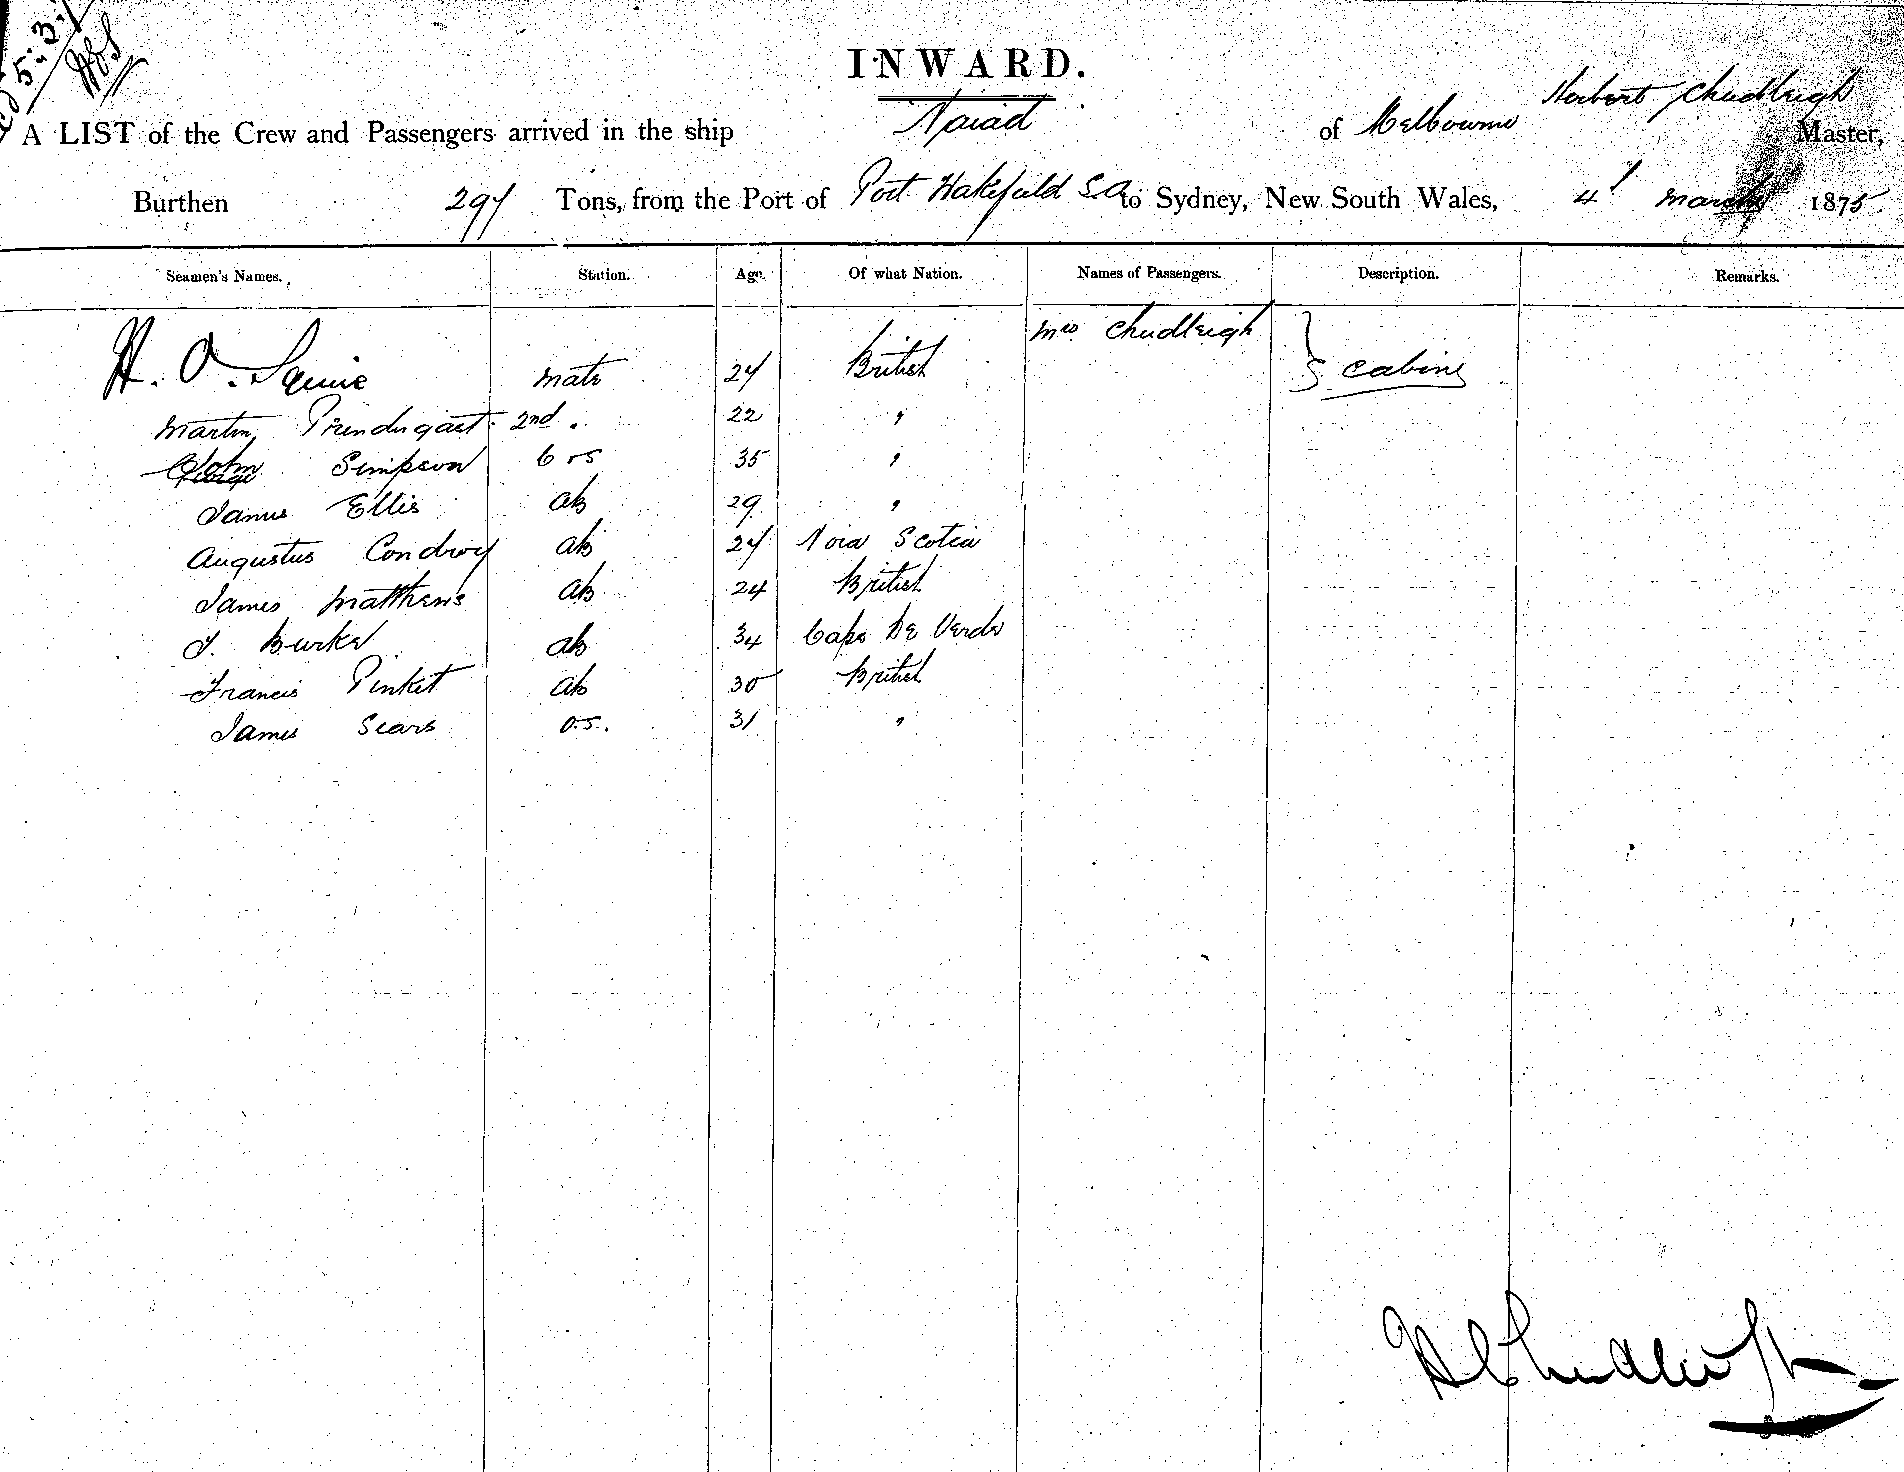 5:3:7
INWARD.
A LIST of the Crew and Passengers arrived in the ship Naiad of Melbourne Herbert Chudleigh Master,
Burthen 297 Tons, from the Port of Port Wakefield S.A. to Sydney, New South Wales, 4 March 1875
Seamen's Names. Station. Age. Of what Nation. Names of Passengers. Description. Remarks.
Mrs Chudleigh
H. O. mate 24 British Cabin
Martin Prendergast 2nd . 22 "
John Simpson 35 "
James Ellis ab 29 "
Augustus ab 27 Nova Scotia
James Matthews ab 24 British
J. Burke ab 34 Cape De Verde
Francis Pinket ab 30 British
James Sears o.s. 31 "
H Chudleigh